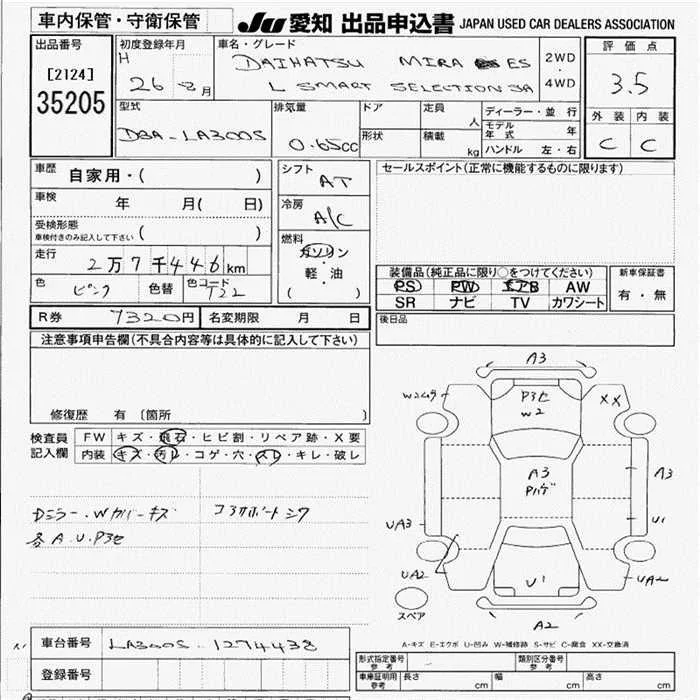 車内保管・守衛保管
JU 愛知 出品申込書 JAPAN USED CAR DEALERS ASSOCIATION
出品番号
[2124]
35205
初度登録年月
H
26 年 2 月
車名・グレード
DAIHATSU MIRA ES
L SMART SELECTION SA
2WD
・
4WD
評価点
3.5
外装 内装
C C
型式
DBA-LA300S
排気量
0.65cc
ドア
形状
定員
人
積載
kg
ディーラー・並行
モデル年式 年
ハンドル 左・右
車歴
自家用・( )
車検
年 月( 日)
受検形態
車検付きのみ記入して下さい ( )
走行
2万7千446km
色
ピンク
色替
色コード
T22
シフト
AT
冷房
A/C
燃料
ガソリン
・
軽・油
( )
セールスポイント(正常に機能するものに限ります)
装備品(純正品に限り○をつけてください)
PS PW エアB AW
SR ナビ TV カワシート
新車保証書
有・無
後日品
R券 7320円 名変期限 月 日
注意事項申告欄(不具合内容等は具体的に記入して下さい)
修復歴 有〔箇所 〕
検査員
記入欄
FW キズ・飛石・ヒビ割・リペア跡・X要
内装 キズ・汚レ・コゲ・穴・スレ・キレ・破レ
Dミラー・Wカバーキズ
各A.U.P3セ
A3
P3セ
W2
XX
A3
Pハゲ
A3
U1
UA3
UA2
U1
UA2
A2
スペア
A-キズ E-エクボ U-凹み W-補修跡 S-サビ C-腐食 XX-交換済
車台番号 LA300S-1274438
登録番号
形式指定番号
参考
類別区分番号
参考
車庫証明用
参考
長さ cm 幅 cm 高さ cm